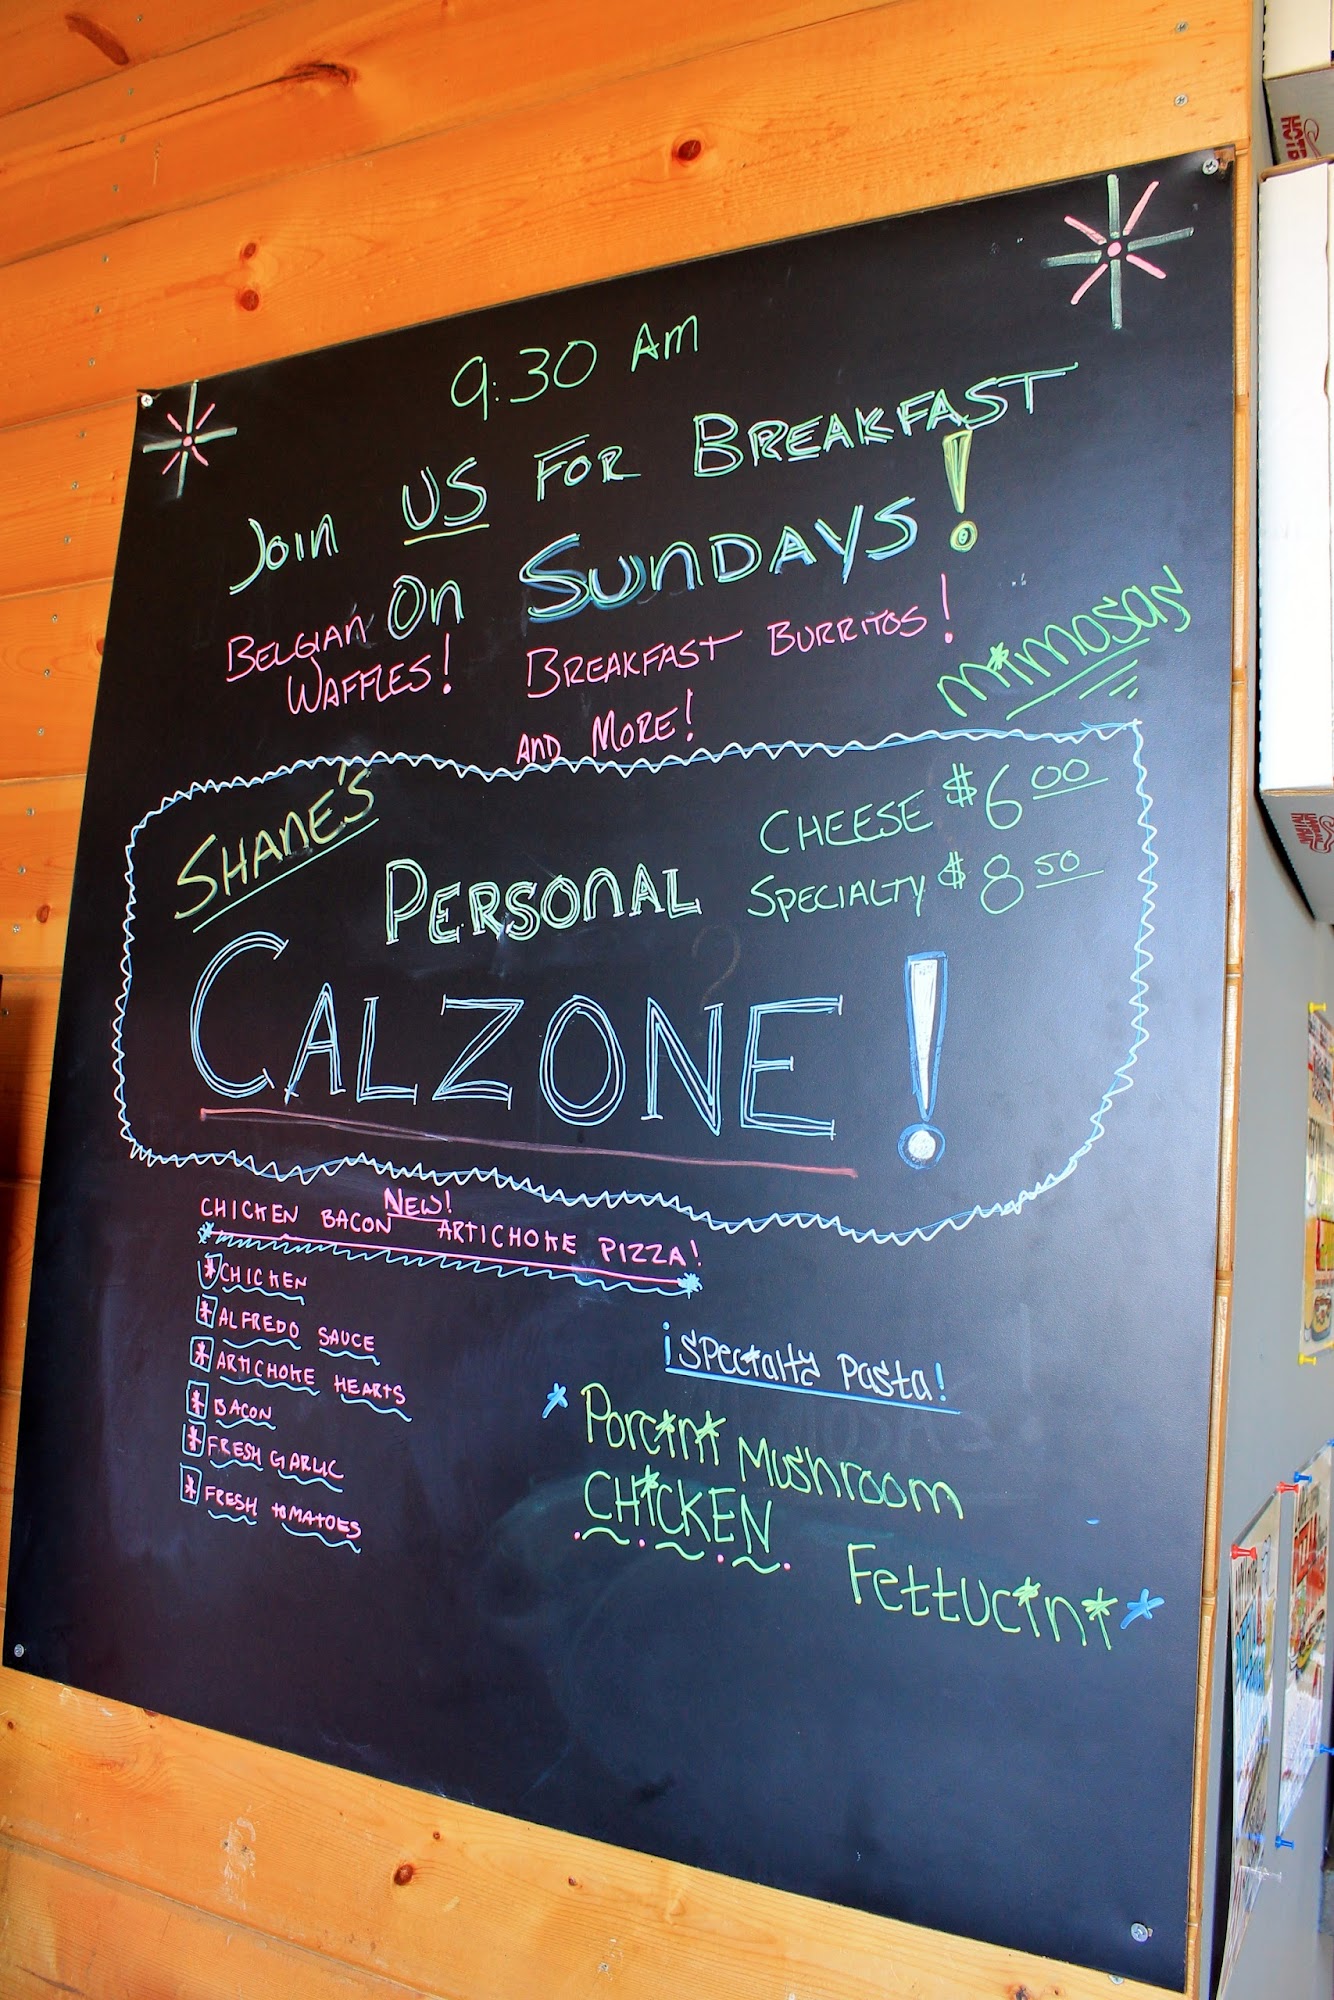 9:30 Am
Join US For Breakfast
On Sundays!
Belgian
Waffles!
Breakfast Burritos!
and More!
mimosas
Shane's
Personal
Cheese $6 00
Specialty $8 50
Calzone!
New!
Chicken Bacon Artichoke Pizza!
* Chicken
* Alfredo Sauce
* Artichoke Hearts
* Bacon
* Fresh Garlic
* Fresh tomatoes
¡Specialty Pasta!
* Porcini Mushroom
CHICKEN
Fettucini *